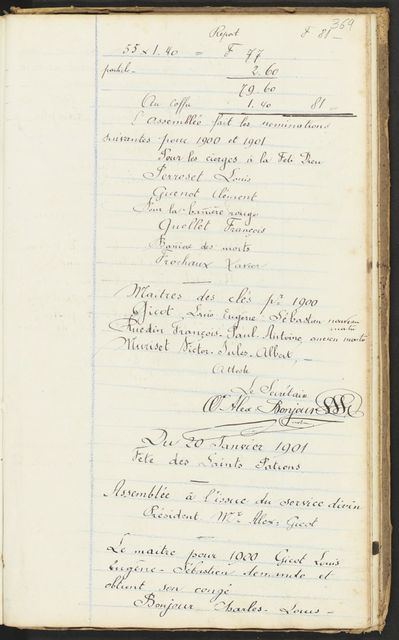 369
Report F 81 _
55 x 1.40 = F 77
2.60
79.60
Au coffre 1.40 81 _
L'assemblée fait les nominations
suivantes pour 1900 et 1901
Pour les cierges à la Fête Dieu
Perroset Louis
Guenot Clément
Pour la bannière rouge
Quellet François
Bannière des morts
Frochaux Xavier
Maitres des clés pr 1900
Gicot Louis Eugène Sébastien nouveau maitre
Ruedin François-Paul-Antoine, ancien maitre
Muriset Victor-Jules-Albert, _
Atteste
Le Secrétaire
Alex Bonjour
Du 20 Janvier 1901
Fête des Saints Patrons
Assemblée à l'issue du service divin
Président Mr Alex. Gicot
Le maitre pour 1900 Gicot Louis
Eugène-Sébastien demande et
obtient son congé
Bonjour Charles-Louis _